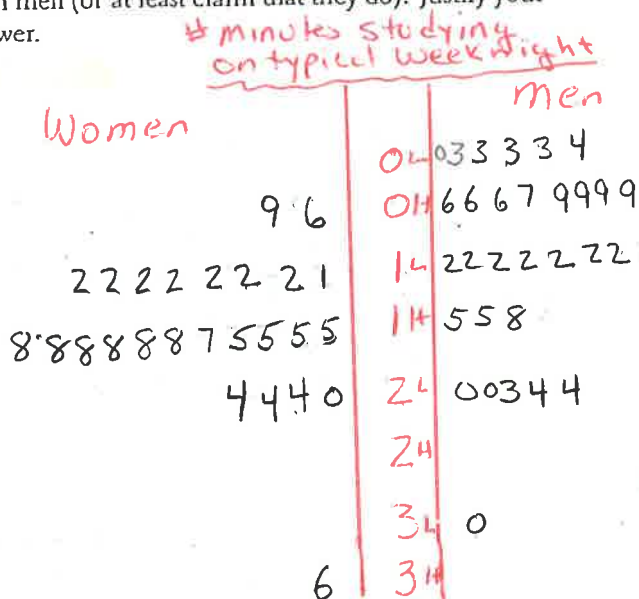 n men (or at least claim that they do). Justify your
wer.
# minutes studying
on typical weeknight
Women
Men
0L 033334
96 0H 66679999
22222221 1L 2222222
88888875555 1H 558
4440 2L 00344
2H
3L 0
6 3H